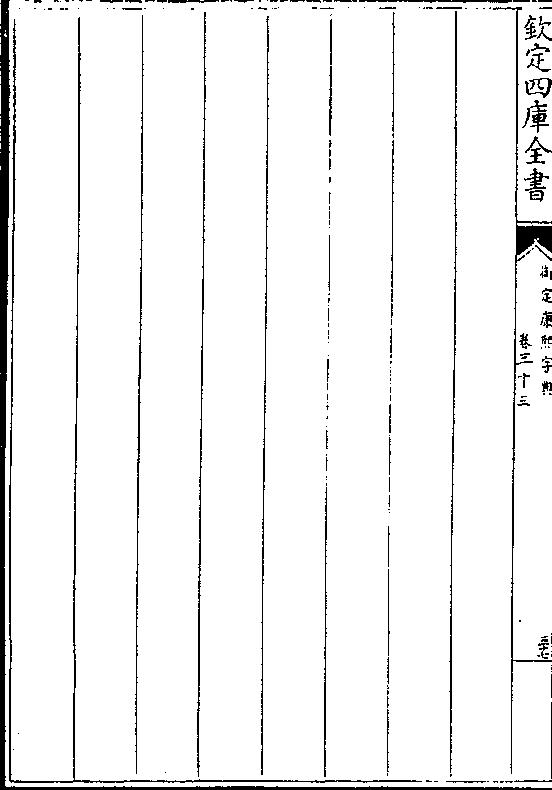 欽定四庫全書
御定康熙字典
卷三十三